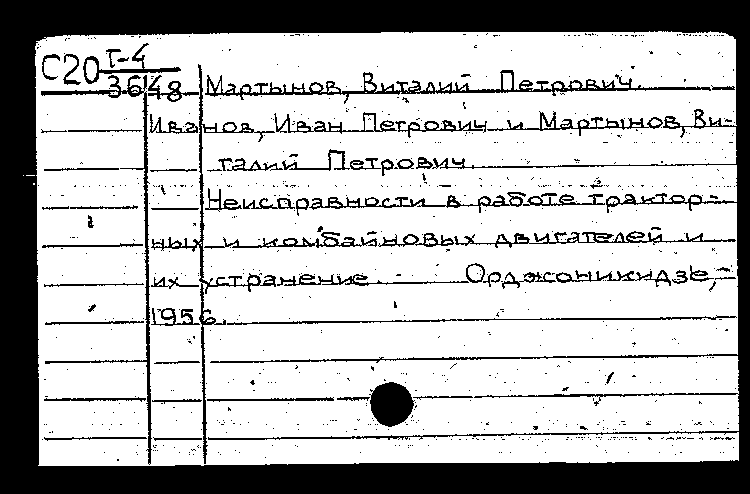 С20 Т-4
3648 Мартынов, Виталий Петрович.
Иванов, Иван Петрович и Мартынов, Ви-
талий Петрович.
Неисправности в работе трактор-
ных и комбайновых двигателей и
их устранение. Орджоникидзе,
1956.